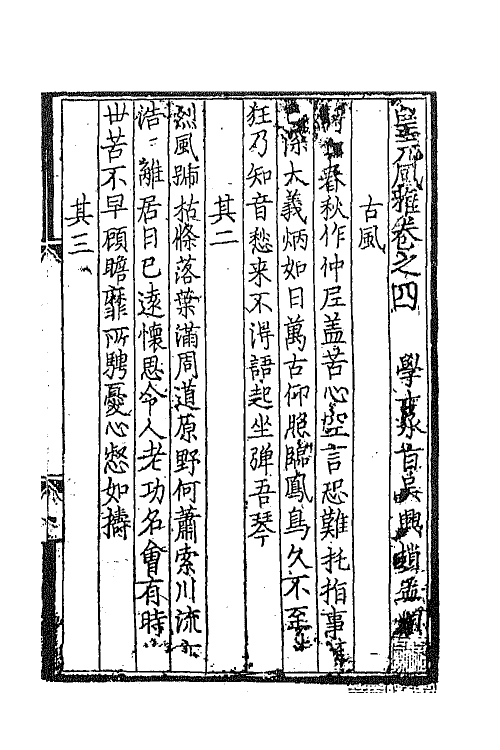 皇元風雅卷之四　學　　吳興趙孟頫
古風
詩　春秋作仲尼蓋苦心空言恐難托指事
已深大義炳如日萬古仰照臨鳳鳥久不至
狂乃知音愁來不得語起坐彈吾琴
其二
烈風號枯條落葉滿周道原野何蕭索川流
浩〻離居日已遠懷思令人老功名會有時
世苦不早顧瞻靡所騁憂心惄如擣
其三